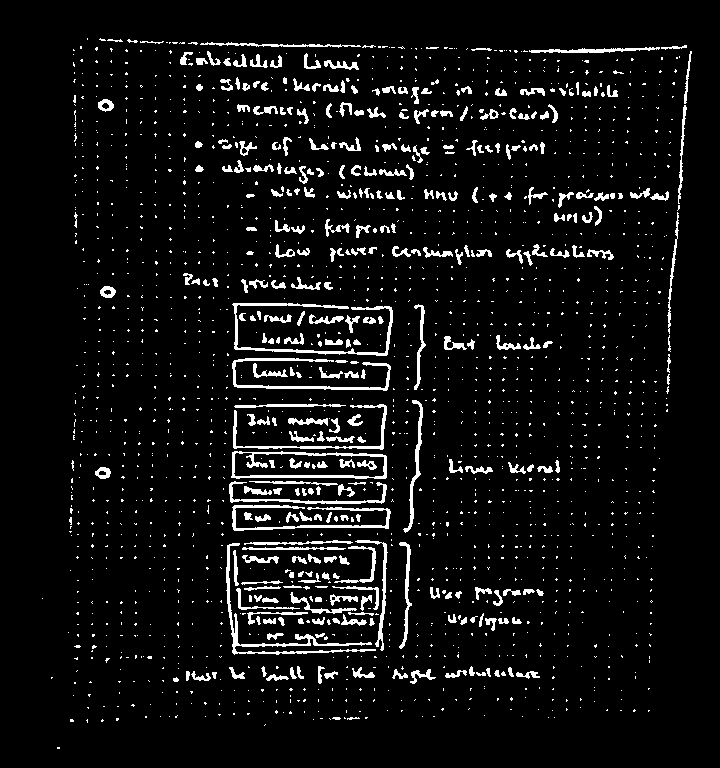 Embedded Linux
• Store "kernel's image" in a non-volatile
memory (flash Eprom / SD-Card)
• Size of kernel image = footprint
• advantages (CLinux)
- Work without MMU (++ for processors without
MMU)
- Low footprint
- Low power consumption applications
Boot procedure
Extract / Decompress
kernel image
Launch kernel
Boot loader
Init memory &
Hardware
Init device drivers
Mount root FS
Run /sbin/init
Linux kernel
Start network
service
login prompt
Start x-windows
or apps
User programs
User/space
• Must be built for the right architecture